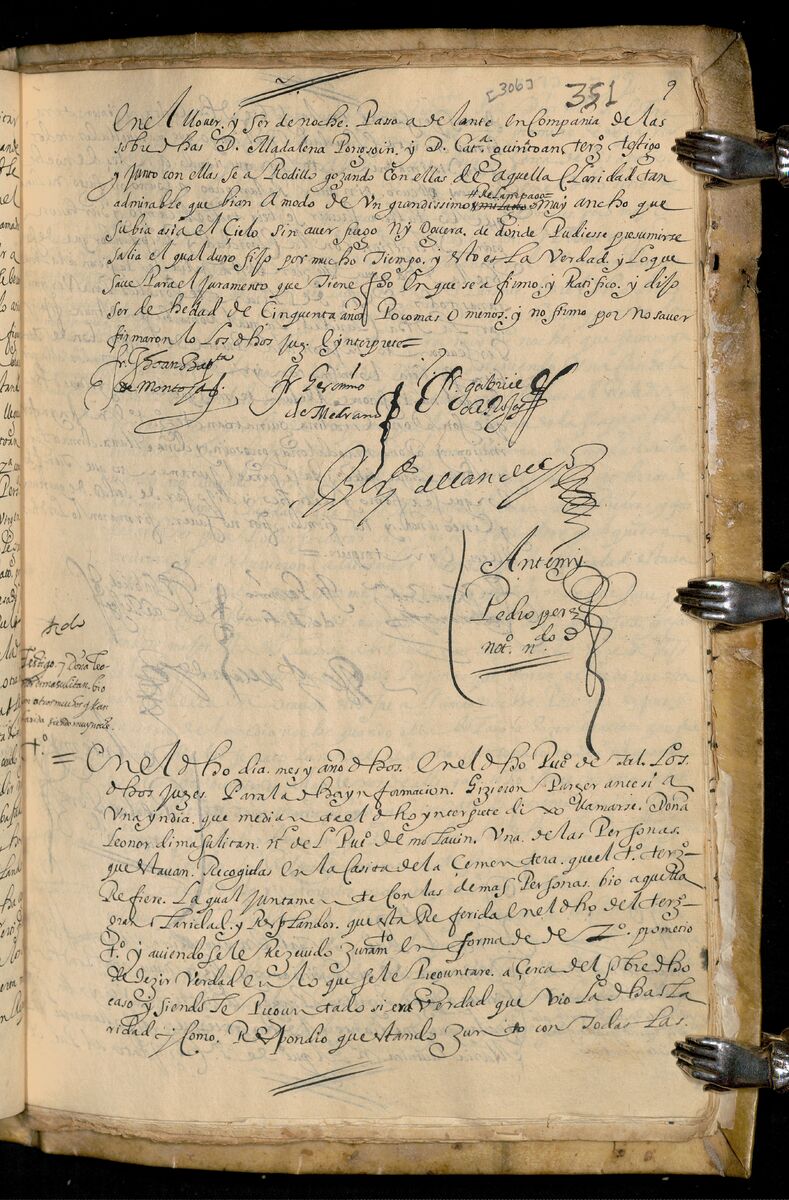 [306] 351 9
en el llover, y ser de noche. Passo adelante en Compania de las
sobredhas D. Madalena Pongsoin, y D. Catª. quintoan, terzº testigo
y junto con ellas se aRodillo gozando con ellas de aquella Claridad tan
#de Lampago=
admirable que bian a modo de Vn grandissimo muy ancho que
subia asia el Cielo sin aver fuego Ny Oguera. de donde Pudiesse presumirse
salia el qual duro fijo por mucho Tiempo. y esto es La Verdad y Lo que
save Para el juramento que Tiene fho En que se afirmo. y Ratifico. y dijo
ser de hedad de Cinquenta años Poco mas o menos. y no firmo por no saver
firmaron lo Los dhos juez. e ynterprete=
fr. Jhoan Bapta
de Montoja
fr Geronimo
de Medrano
fr. gabriel
de Rojas
Antemy
Pedro perz
notº. ndo
Testigo. 7 Doña Leo-
nor dimasulitan. bio
= En el dho dia. mes y año dhos. En el dho Puº. de Ytl. Los
dhos juezes Para la dha ynformacion. hizieron Parezer ante si a
Vna yndia. que mediante el dho ynterpete dixo llamarse. Doña
Leonor. dimasulitan. nl. de L Puº. de molauin. Vna. de las Personas.
que estavan. Recogidas en la Casita de la Cementera. que el tº. terzº
Refiere. La qual juntamente con las demas Personas. bio aquella
gran Claridad. y Resplandor. que esta Referida en el dho del terzº
tº. y aviendosele Rezevido Juramto en forma de dezº. prometio
de dezir Verdad en lo que se le Preguntare. açerca del sobredho
caso y siendole Preguntado si era Verdad que vio La dha Cla
ridad y Como. Respondio que estando Junto con Todas Las.